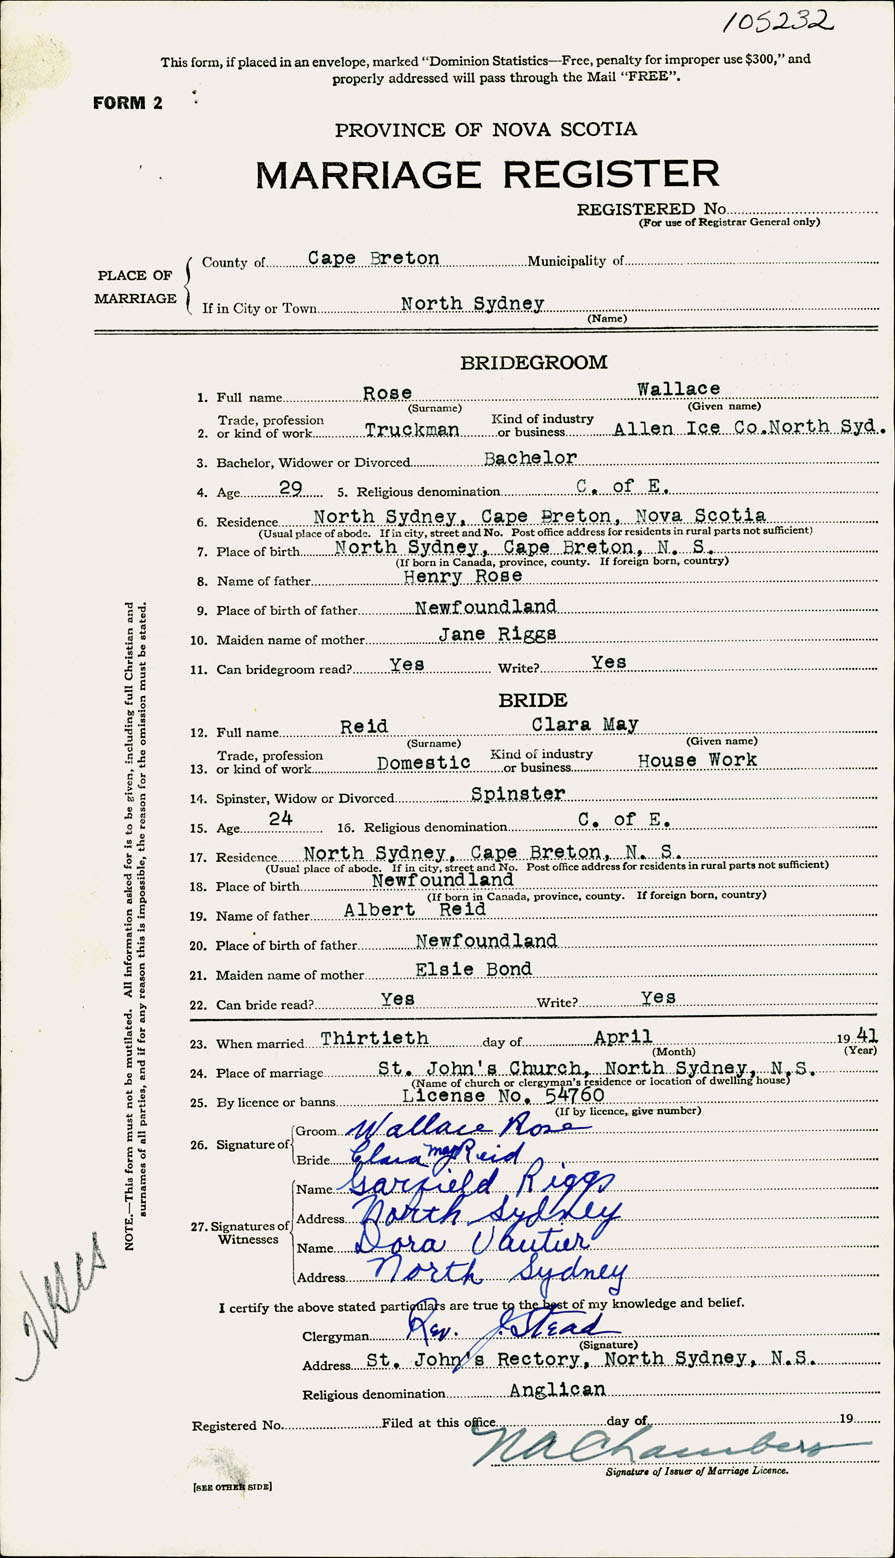 105232
This form, if placed in an envelope, marked “Dominion Statistics—Free, penalty for improper use $300,” and
properly addressed will pass through the Mail “FREE”.
FORM 2
PROVINCE OF NOVA SCOTIA
MARRIAGE REGISTER
REGISTERED No.
(For use of Registrar General only)
PLACE OF MARRIAGE
County of Cape Breton Municipality of
If in City or Town North Sydney
(Name)
BRIDEGROOM
1. Full name Rose Wallace
(Surname) (Given name)
Trade, profession Kind of industry
2. or kind of work Truckman or business Allen Ice Co.North Syd.
3. Bachelor, Widower or Divorced Bachelor
4. Age 29 5. Religious denomination C. of E.
6. Residence North Sydney, Cape Breton, Nova Scotia
(Usual place of abode. If in city, street and No. Post office address for residents in rural parts not sufficient)
7. Place of birth North Sydney, Cape Breton, N. S.
(If born in Canada, province, county. If foreign born, country)
8. Name of father Henry Rose
9. Place of birth of father Newfoundland
10. Maiden name of mother Jane Riggs
11. Can bridegroom read? Yes Write? Yes
BRIDE
12. Full name Reid Clara May
(Surname) (Given name)
Trade, profession Kind of industry
13. or kind of work Domestic or business House Work
14. Spinster, Widow or Divorced Spinster
15. Age 24 16. Religious denomination C. of E.
17. Residence North Sydney, Cape Breton, N. S.
(Usual place of abode. If in city, street and No. Post office address for residents in rural parts not sufficient)
18. Place of birth Newfoundland
(If born in Canada, province, county. If foreign born, country)
19. Name of father Albert Reid
20. Place of birth of father Newfoundland
21. Maiden name of mother Elsie Bond
22. Can bride read? Yes Write? Yes
23. When married Thirtieth day of April 1941
(Month) (Year)
24. Place of marriage St. John's Church, North Sydney, N.S.
(Name of church or clergyman's residence or location of dwelling house)
25. By licence or banns License No. 54760
(If by licence, give number)
26. Signature of
Groom Wallace Rose
Bride Clara May Reid
27. Signatures of Witnesses
Name Garfield Riggs
Address North Sydney
Name Dora Vautier
Address North Sydney
I certify the above stated particulars are true to the best of my knowledge and belief.
Clergyman Rev. J. Stead
(Signature)
Address St. John's Rectory, North Sydney, N.S.
Religious denomination Anglican
Registered No. Filed at this office day of 19
N A Chambers
Signature of Issuer of Marriage Licence.
[SEE OTHER SIDE]
NOTE.—This form must not be mutilated. All information asked for is to be given, including full Christian and
surnames of all parties, and if for any reason this is impossible, the reason for the omission must be stated.